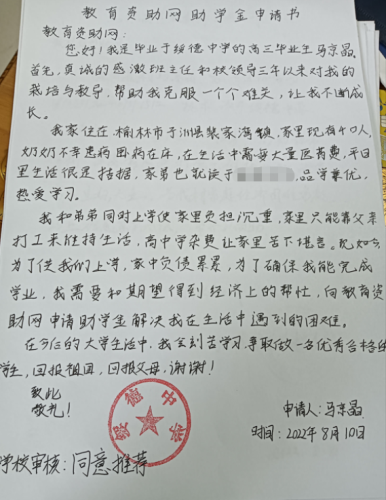 教育资助网助学金申请书
教育资助网:
您好!我是毕业于绥德中学的高三毕业生马京晶。
首先,真诚的感激班主任和校领导三年以来对我的
栽培与教导,帮助我克服一个个难关,让我不断成
长。
我家住在榆林市子洲县裴家湾镇,家里现有十口人,
奶奶不幸患病困病在床,在生活中需要大量医药费,平日
里生活很是拮据,家弟也就读于 品学兼优,
热爱学习。
我和弟弟同时上学使家里负担沉重,家里只能靠父亲
打工来维持生活,高中学杂费让家里苦不堪言。
为了供我们上学,家中负债累累,为了确保我能完成
学业,我需要和期望得到经济上的帮忙,向教育资
助网申请助学金解决我在生活中遇到的困难。
在今后的大学生活中,我会刻苦学习,争取做一名优秀合格的
学生,回报祖国,回报父母,谢谢!
致此
敬礼!
绥德中学
申请人:马京晶
时间:2022年8月10日
学校审核:同意推荐